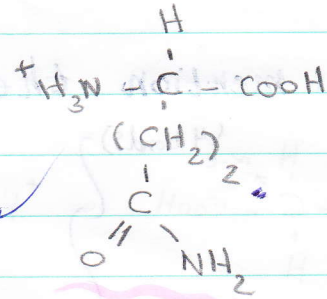 H
+H₃N - C - COOH
(CH₂)₂
C
O NH₂